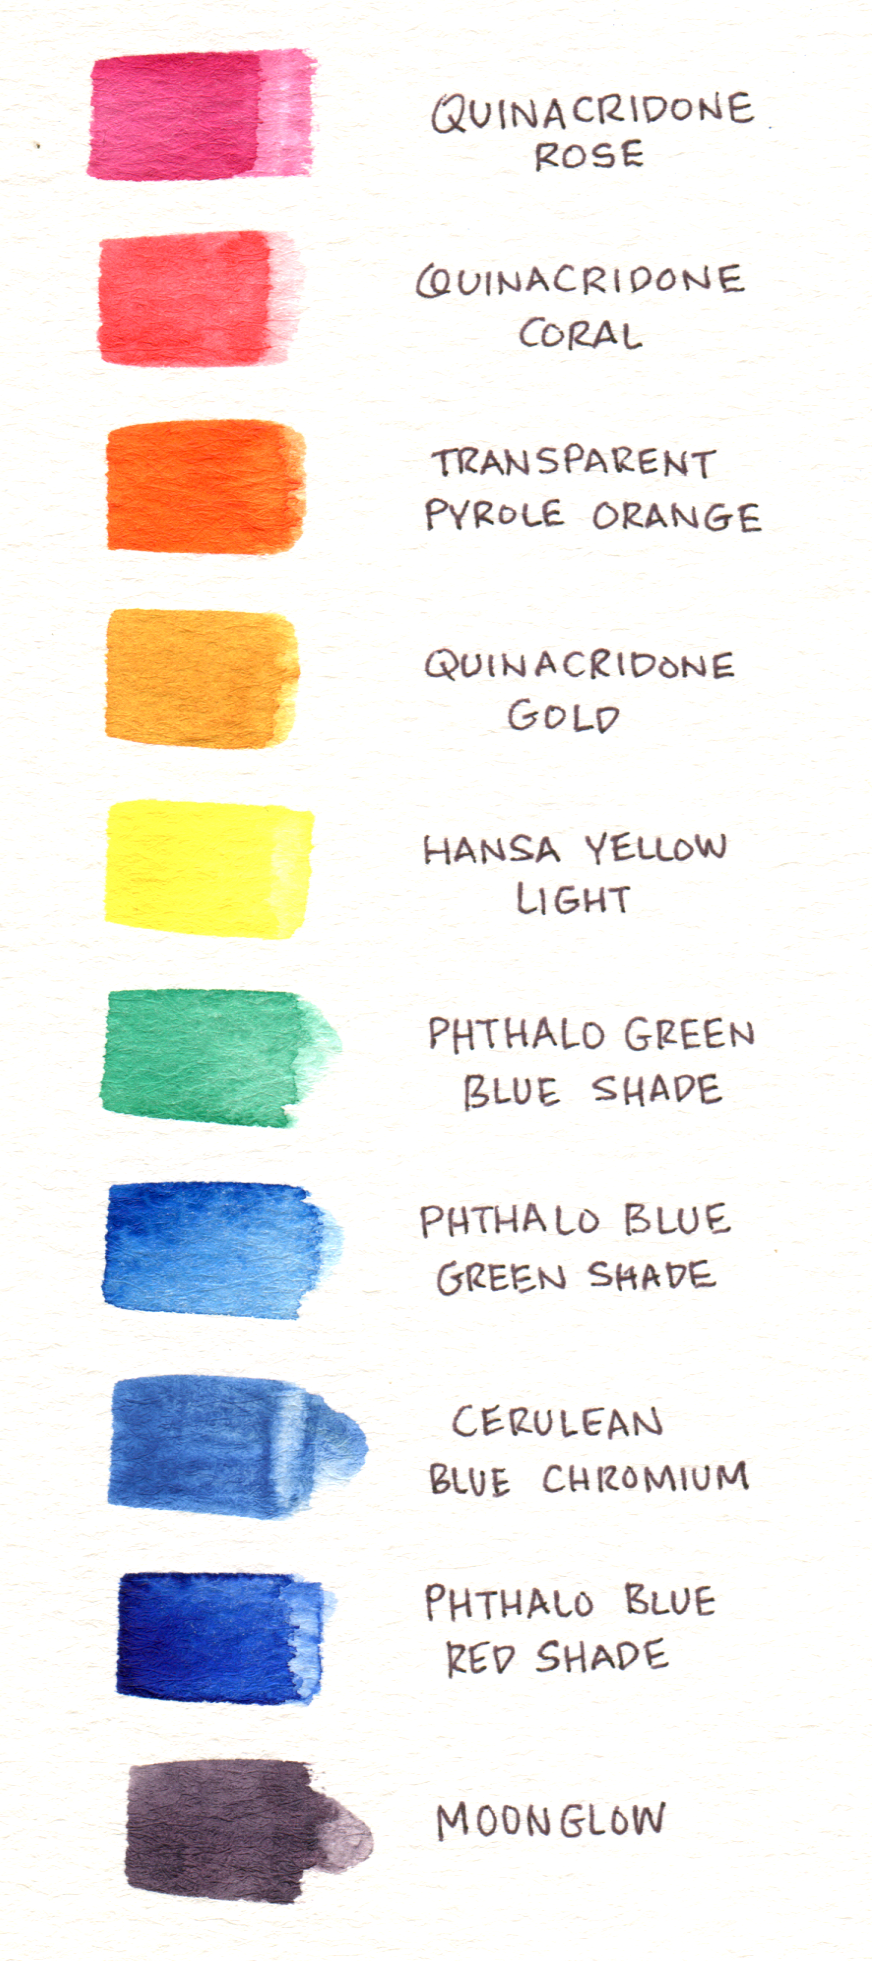 QUINACRIDONE
ROSE
QUINACRIDONE
CORAL
TRANSPARENT
PYROLE ORANGE
QUINACRIDONE
GOLD
HANSA YELLOW
LIGHT
PHTHALO GREEN
BLUE SHADE
PHTHALO BLUE
GREEN SHADE
CERULEAN
BLUE CHROMIUM
PHTHALO BLUE
RED SHADE
MOONGLOW